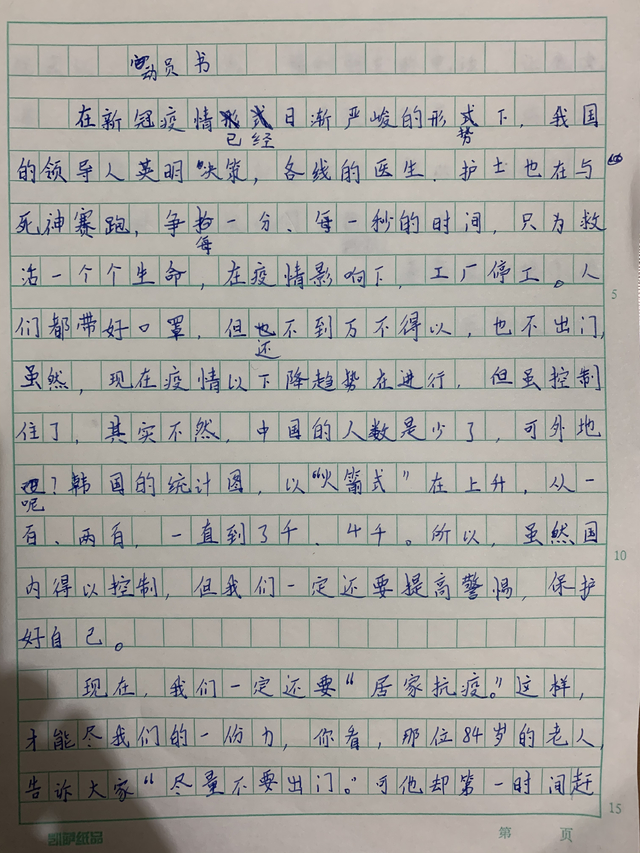 动员书
在新冠疫情已经日渐严峻的形势下，我国
的领导人英明决策，各线的医生、护士也在与
死神赛跑，争抢每一分、每一秒的时间，只为救
活一个个生命，在疫情影响下，工厂停工。人
们都带好口罩，但还不到万不得以，也不出门，
虽然，现在疫情以下降趋势在进行，但虽控制
住了，其实不然，中国的人数是少了，可外地
呢？韩国的统计图，以“火箭式”在上升，从一
百、两百，一直到了千、4千。所以，虽然国
内得以控制，但我们一定还要提高警惕，保护
好自己。
现在，我们一定还要“居家抗疫。”这样，
才能尽我们的一份力，你看，那位84岁的老人，
告诉大家“尽量不要出门。”可他却第一时间赶
5
10
15
凯萨纸品
第 页